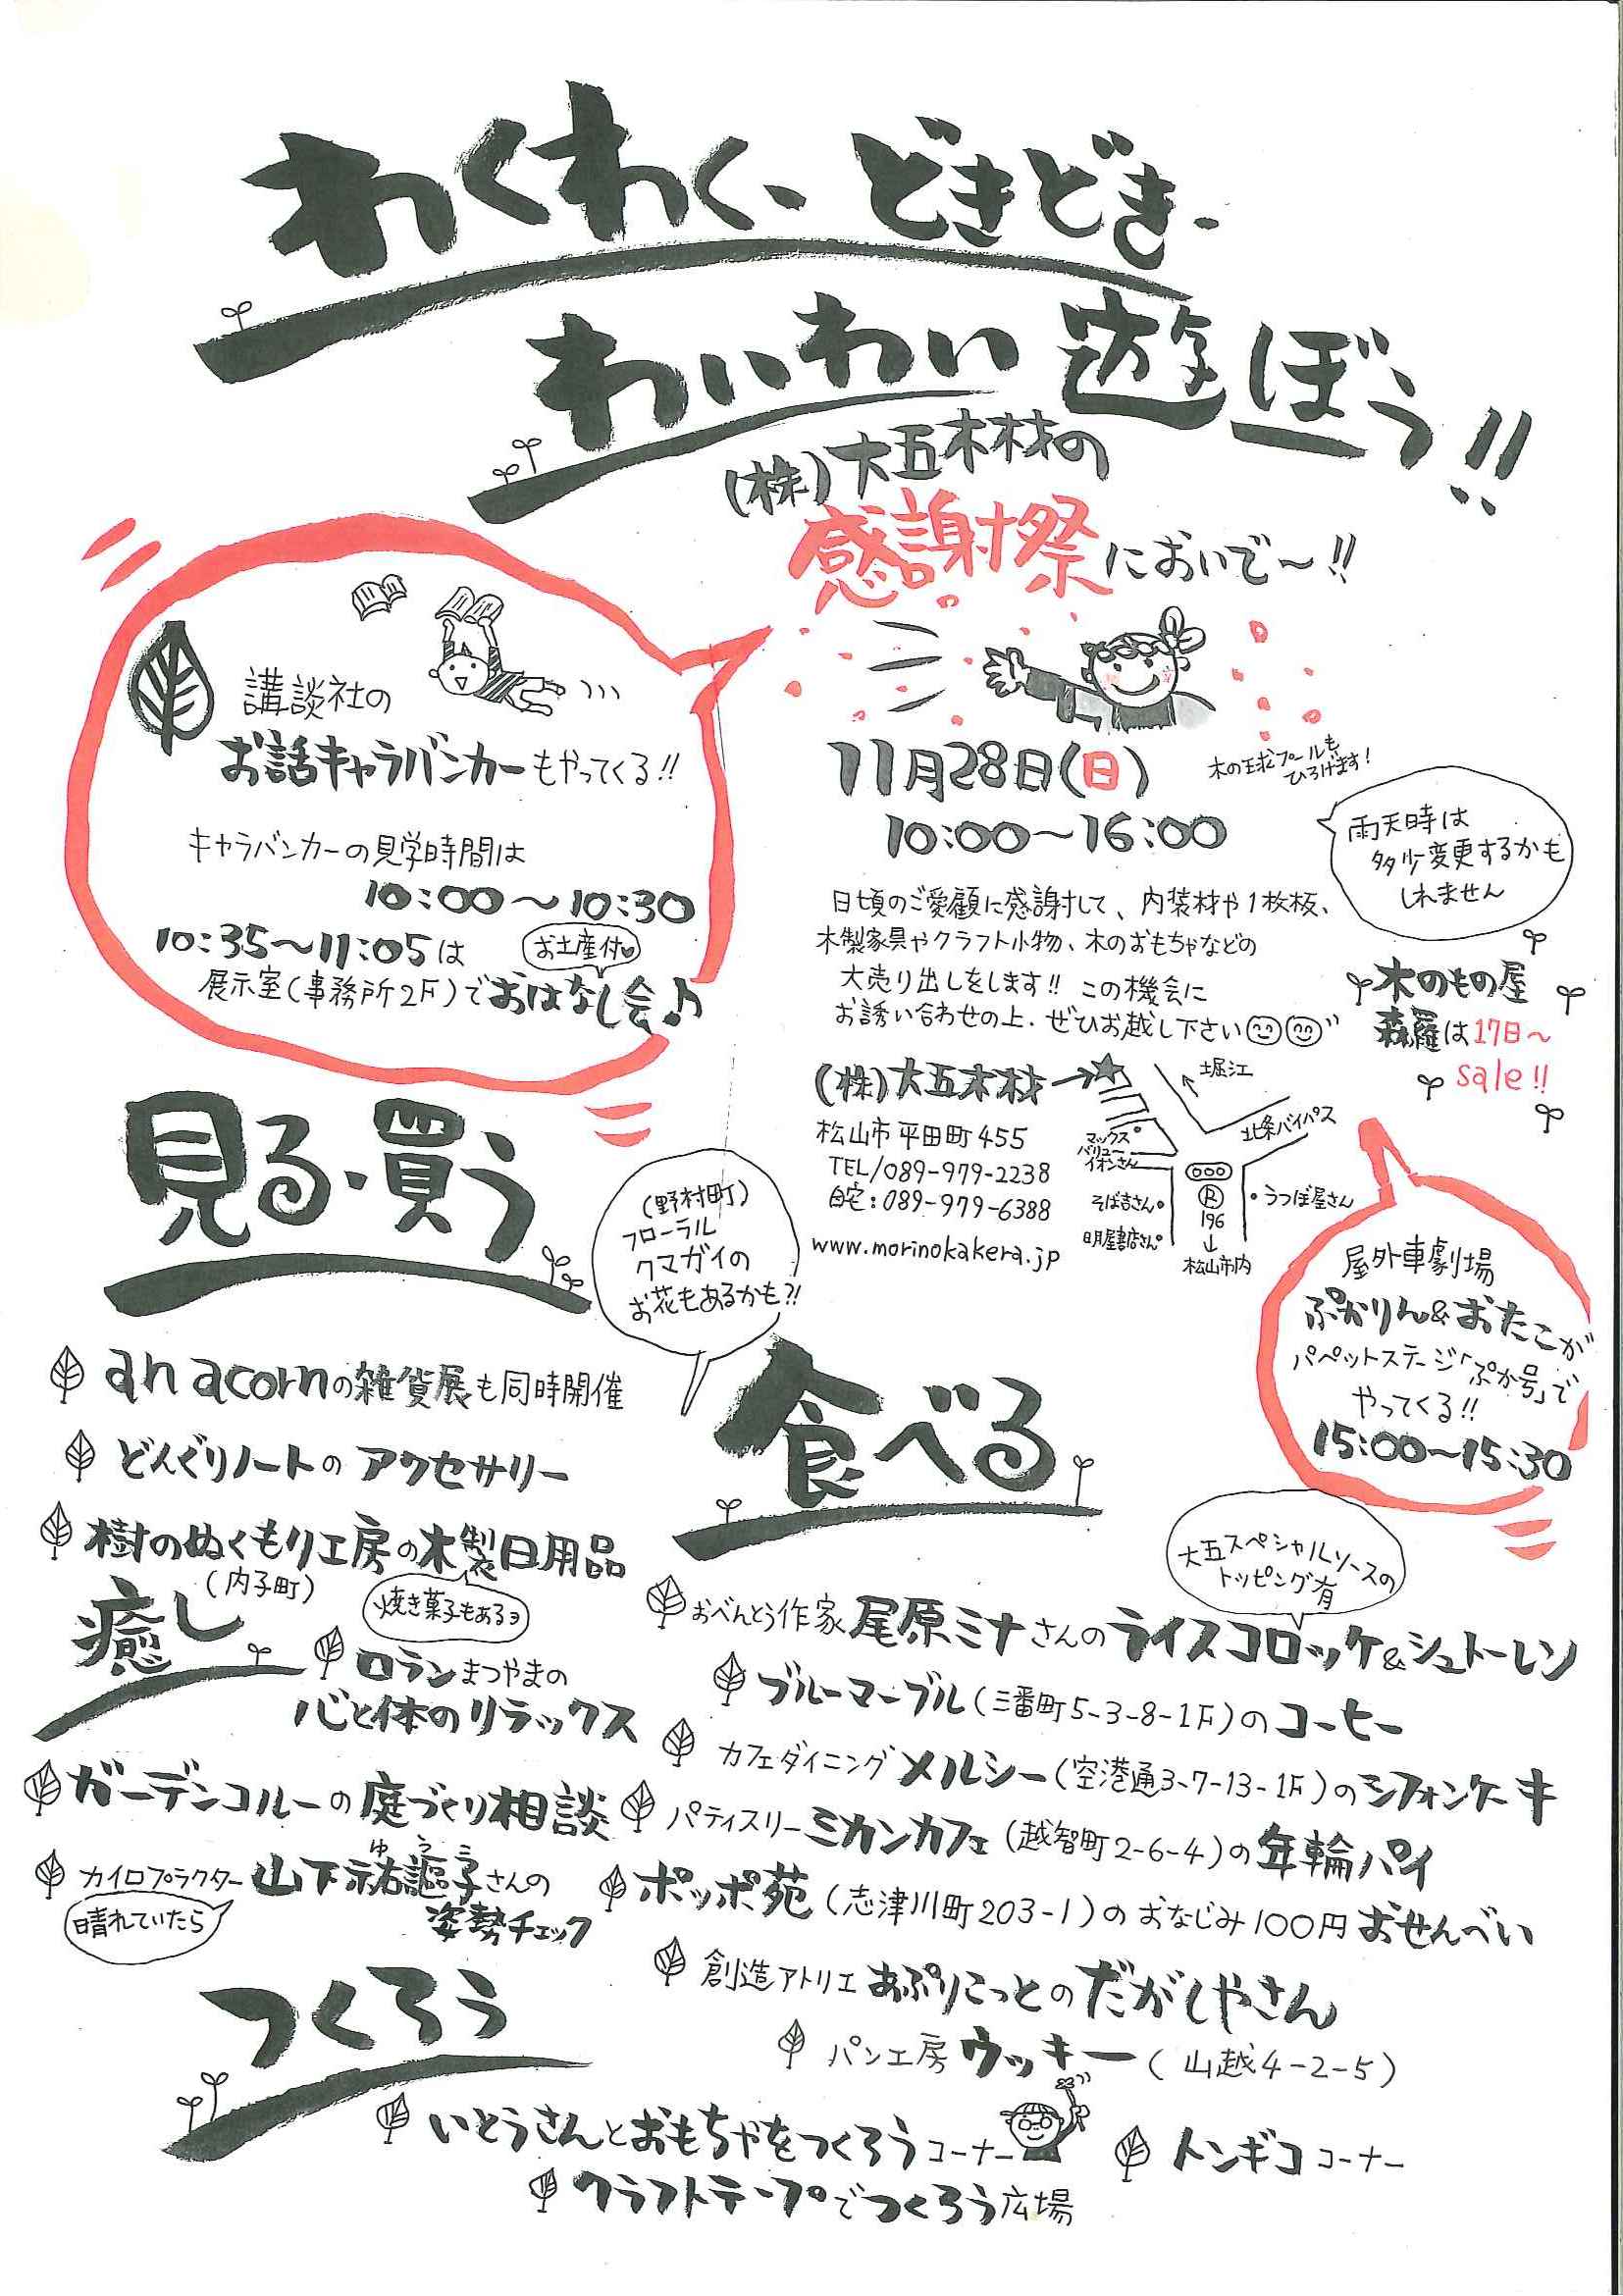 わくわく、どきどき、
わいわい遊ぼう!!
(株)大五木材の
感謝祭においで〜!!
講談社の
お話キャラバンカーもやってくる!!
キャラバンカーの見学時間は
10:00〜10:30
10:35〜11:05は
お土産付♥
展示室(事務所2F)でおはなし会♪
11月28日(日)
10:00〜16:00
木の球プールも
ひろげます!
雨天時は
多少変更するかも
しれません
日頃のご愛顧に感謝して、内装材や1枚板、
木製家具やクラフト小物、木のおもちゃなどの
大売り出しをします!! この機会に
お誘い合わせの上、ぜひお越し下さい
木のもの屋
森羅は17日〜
sale!!
(株)大五木材→★
松山市平田町455
TEL/089-979-2238
自宅:089-979-6388
www.morinokakera.jp
堀江
北条バイパス
マックス
バリュー
イオンさん
そば吉さん
明屋書店さん
R
196
↓
松山市内
うつぼ屋さん
屋外車劇場
ぷかりん&おたこが
パペットステージ「ぷか号」で
やってくる!!
15:00〜15:30
見る・買う
(野村町)
フローラル
クマガイの
お花もあるかも?!
an acornの雑貨展も同時開催
どんぐりノートのアクセサリー
樹のぬくもり工房の木製日用品
(内子町)
癒し
焼き菓子もあるヨ
ロランまつやまの
心と体のリラックス
ガーデンコルーの庭づくり相談
カイロプラクター山下祐謳子さんの
ゆうこ
姿勢チェック
晴れていたら
食べる
大五スペシャルソースの
トッピング有
おべんとう作家尾原ミナさんのライスコロッケ&シュトーレン
ブルーマーブル(三番町5-3-8-1F)のコーヒー
カフェダイニングメルシー(空港通3-7-13-1F)のシフォンケーキ
パティスリーミカンカフェ(越智町2-6-4)の年輪パイ
ポッポ苑(志津川町203-1)のおなじみ100円おせんべい
創造アトリエあぷりこっとのだがしやさん
パン工房ウッキー(山越4-2-5)
つくろう
いとうさんとおもちゃをつくろうコーナー
トンギココーナー
クラフトテープでつくろう広場